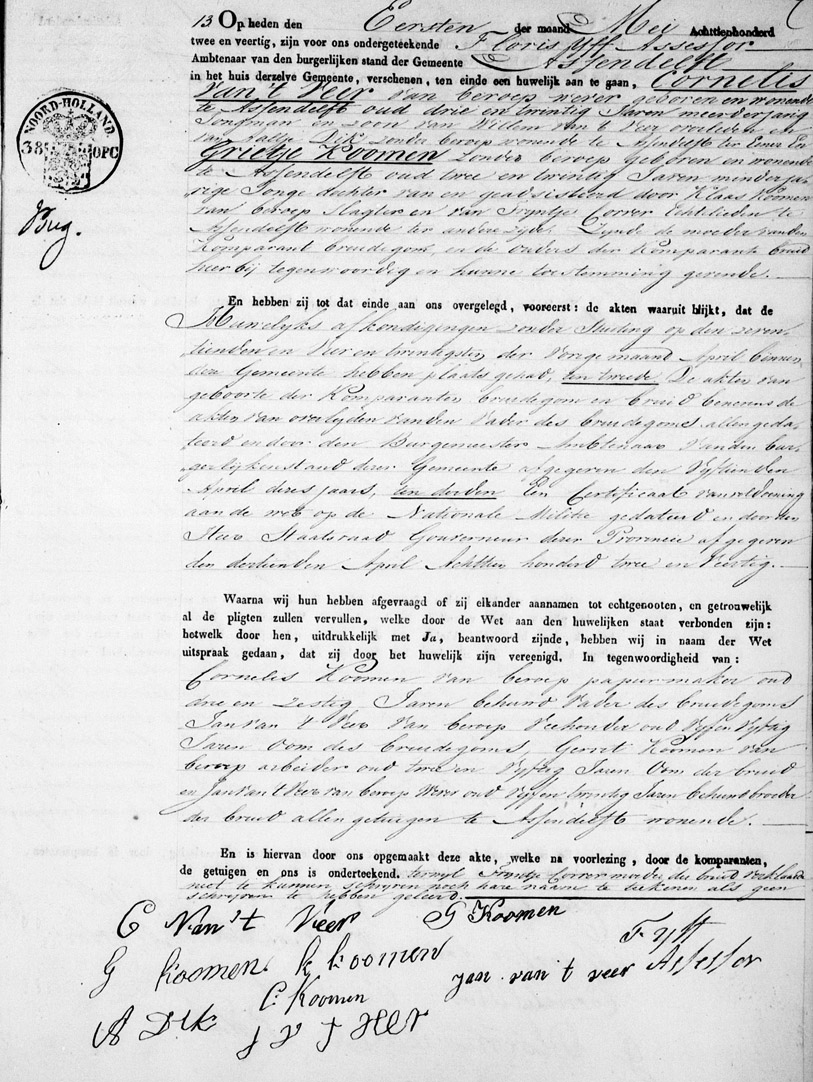 13 Op heden den Eersten der maand Mei Achttienhonderd
twee en veertig, zijn voor ons ondergeteekende Floris Yff Assessor
Ambtenaar van den burgerlijken stand der Gemeente Assendelft
in het huis derzelve Gemeente, verschenen, ten einde een huwelijk aan te gaan, Cornelis
van 't Veer van beroep wever geboren en wonende
te Assendelft oud drie en twintig Jaren meerderjarig
Jongman en zoon van Willem van 't Veer overleden en
van Aaltje Dik zonder beroep wonende te Assendelft ter Eener En
Grietje Koomen zonder beroep geboren en wonende
te Assendelft oud twee en twintig Jaren minderja-
rige Jonge dochter van en geadsisteerd door Klaas Koomen
van beroep Slagter en van Tryntje Correr Echtelieden te
Assendelft wonende ter andere zyde. Zynde de moeder van den
Komparant bruidegom, en de ouders der Komparante bruid
hier bij tegenwoordig en hunne toestemming gevende.
NOORD-HOLLAND
38 OPC
Bug.
En hebben zij tot dat einde aan ons overgelegd, vooreerst: de akten waaruit blijkt, dat de
Huwelyks afkondigingen zonder Stuiting op den zeven-
tienden en Vier en twintigsten der Vorige maand April binnen
deze Gemeente hebben plaats gehad, ten tweede De akten van
geboorte der Komparanten bruidegom en bruid benevens de
akten van overlyden van den Vader des bruidegoms allen geda-
teerd en door den Burgemeester Ambtenaar van den bur-
gerlijken stand dezer Gemeente afgegeven den Vyftienden
April dezes jaars, ten derden Een Certificaat van voldoening
aan de wet op de Nationale Militie gedateerd en door den
Heer Staatsraad Gouverneur dezer Provincie afgegeven
den dertienden April Achttien honderd twee en Veertig.
Waarna wij hun hebben afgevraagd of zij elkander aannamen tot echtgenooten, en getrouwelijk
al de pligten zullen vervullen, welke door de Wet aan den huwelijken staat verbonden zijn:
hetwelk door hen, uitdrukkelijk met Ja, beantwoord zijnde, hebben wij in naam der Wet
uitspraak gedaan, dat zij door het huwelijk zijn vereenigd. In tegenwoordigheid van:
Cornelis Koomen van beroep papiermaker oud
drie en zestig Jaren behuwd Vader des bruidegoms
Jan van 't Veer van beroep Veehouder oud Vyf en Vyftig
Jaren Oom des bruidegoms, Gerrit Koomen van
beroep arbeider oud twee en Vyftig Jaren Oom der bruid
en Jan van 't Veer van beroep Wever oud Vyf en twintig Jaren behuwd broeder
der bruid allen getuigen te Assendelft wonende.
En is hiervan door ons opgemaakt deze akte, welke na voorlezing, door de komparanten,
de getuigen en ons is onderteekend. terwyl Tryntje Correr moeder der bruid verklaarde
niet te kunnen schryven noch hare naam te teekenen als geen
schryven te hebben geleerd.
C Van 't Veer G Koomen
F Yff
G Koomen k koomen jan van 't veer Assessor
C: Koomen
A Dik J V T HEr